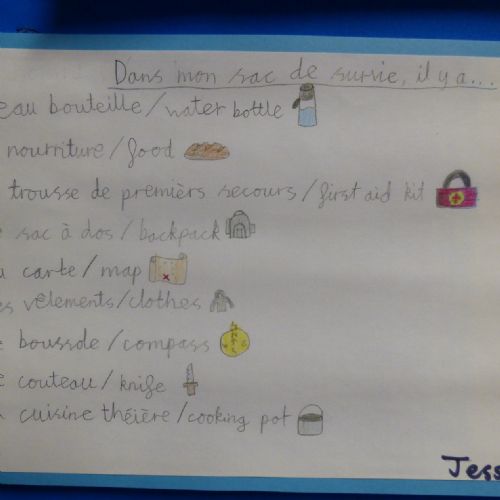 Dans mon sac de survie, il y a...
eau bouteille / water bottle
nourriture / food
trousse de premièrs secours / first aid kit
sac à dos / backpack
carte / map
vêlements / clothes
boussole / compass
couteau / knife
cuisine théière / cooking pot
Jess